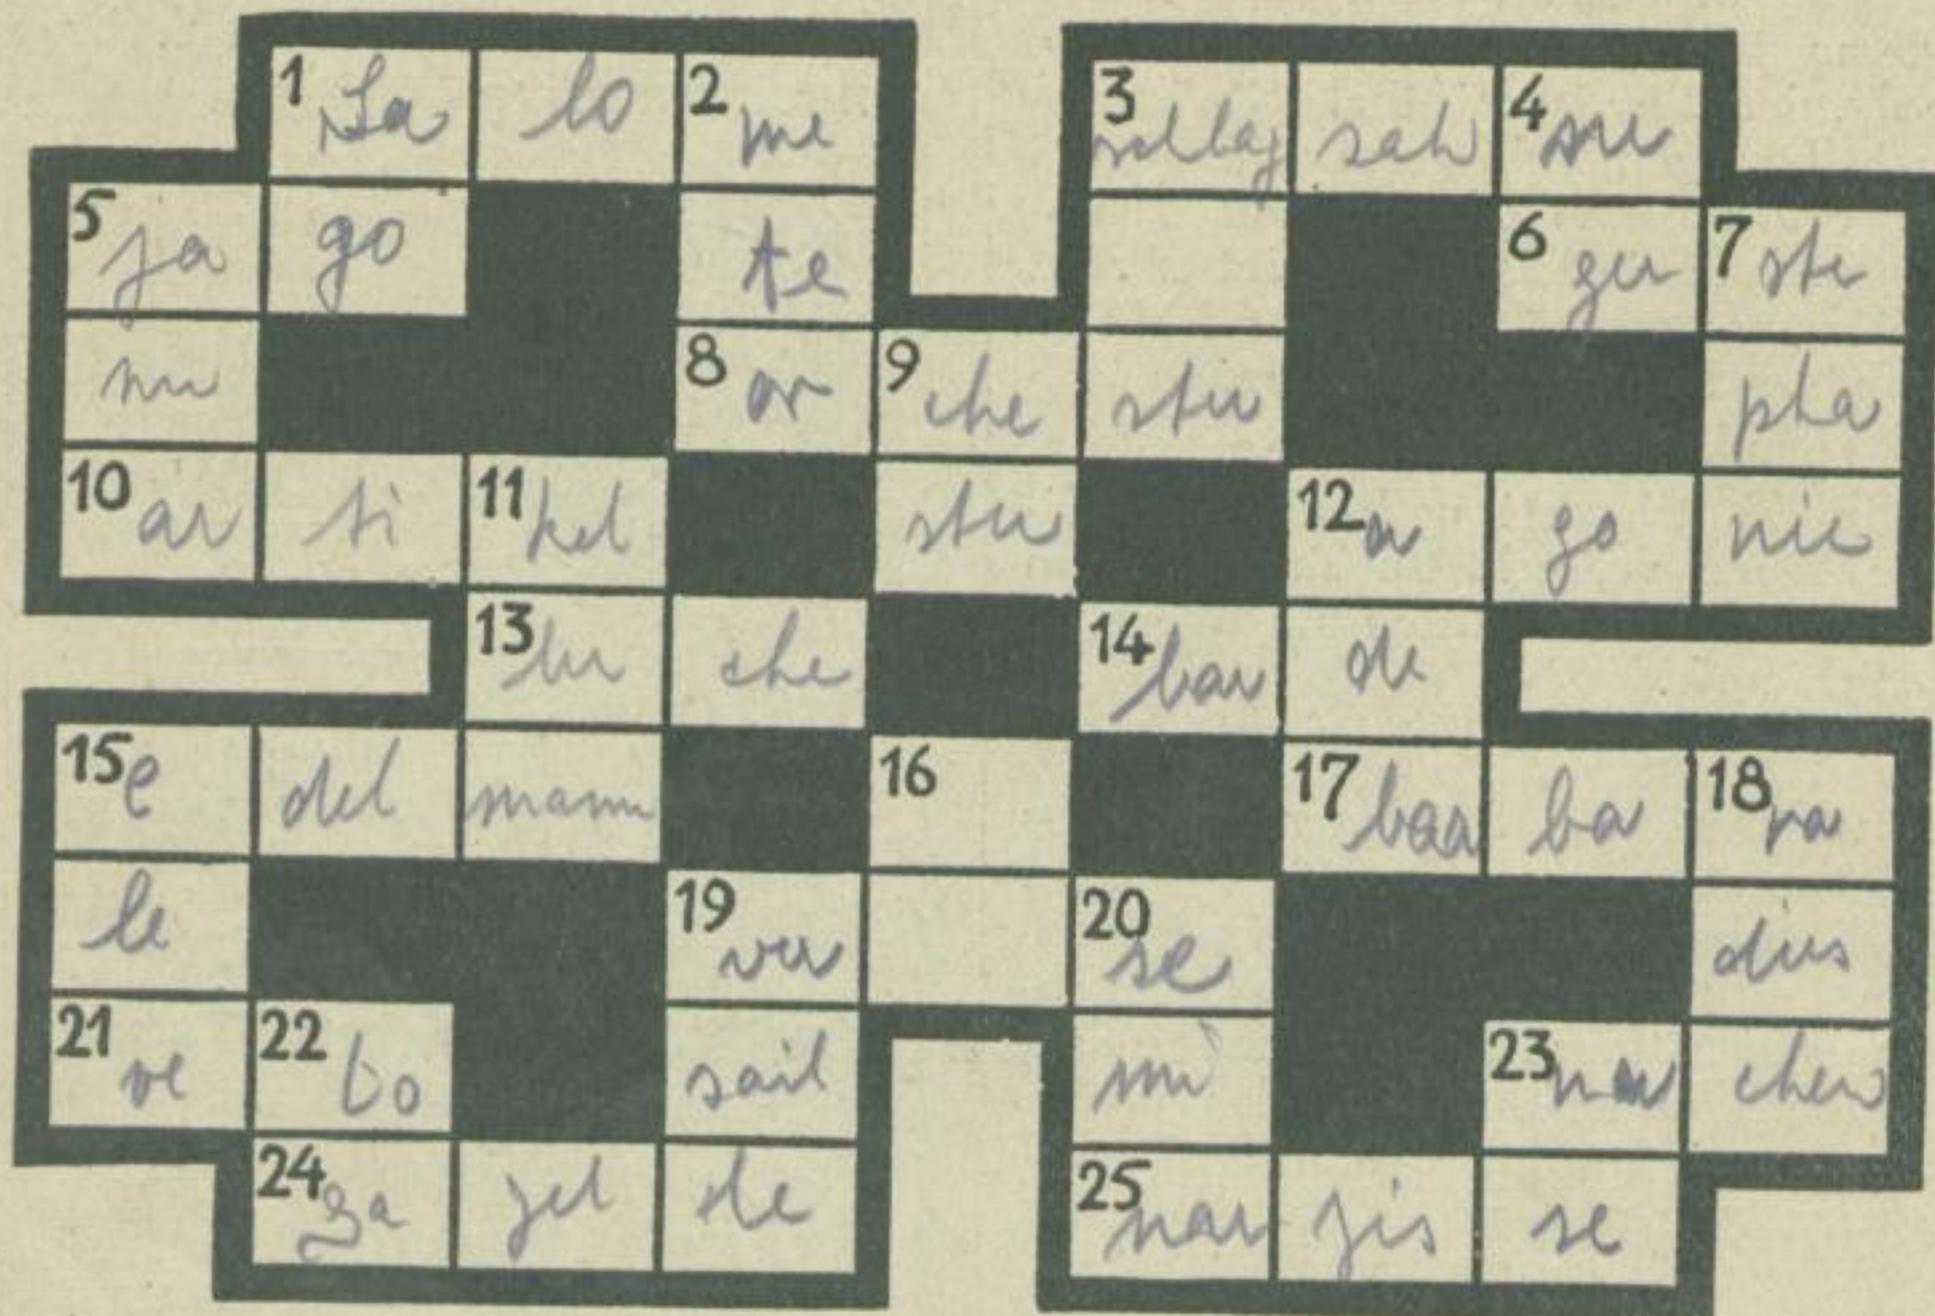 1 Sa lo 2 me 3 sah 4 ne
5 ja go te 6 ger 7 ste
nu 8 or 9 che ster pha
10 ar ti 11 kel ster 12 a go nie
13 ler che 14 bar de
15 e del mann 16 17 baa ba 18 ra
le 19 ver 20 se dies
21 ve 22 bo sail mi 23 na chen
24 ga zel le 25 nar zis se